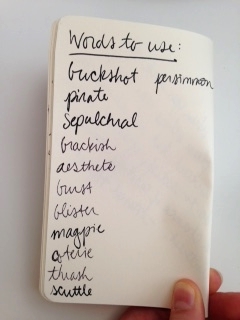 Words to use:
buckshot persimmon
pirate
Sepulchral
brackish
aesthete
burst
blister
magpie
coterie
thrash
scuttle